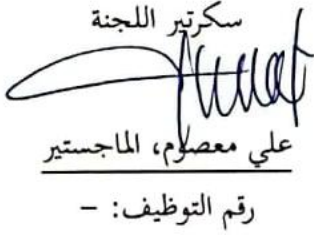 سكرتير اللجنة
علي معصوم، الماجستير
رقم التوظيف: –